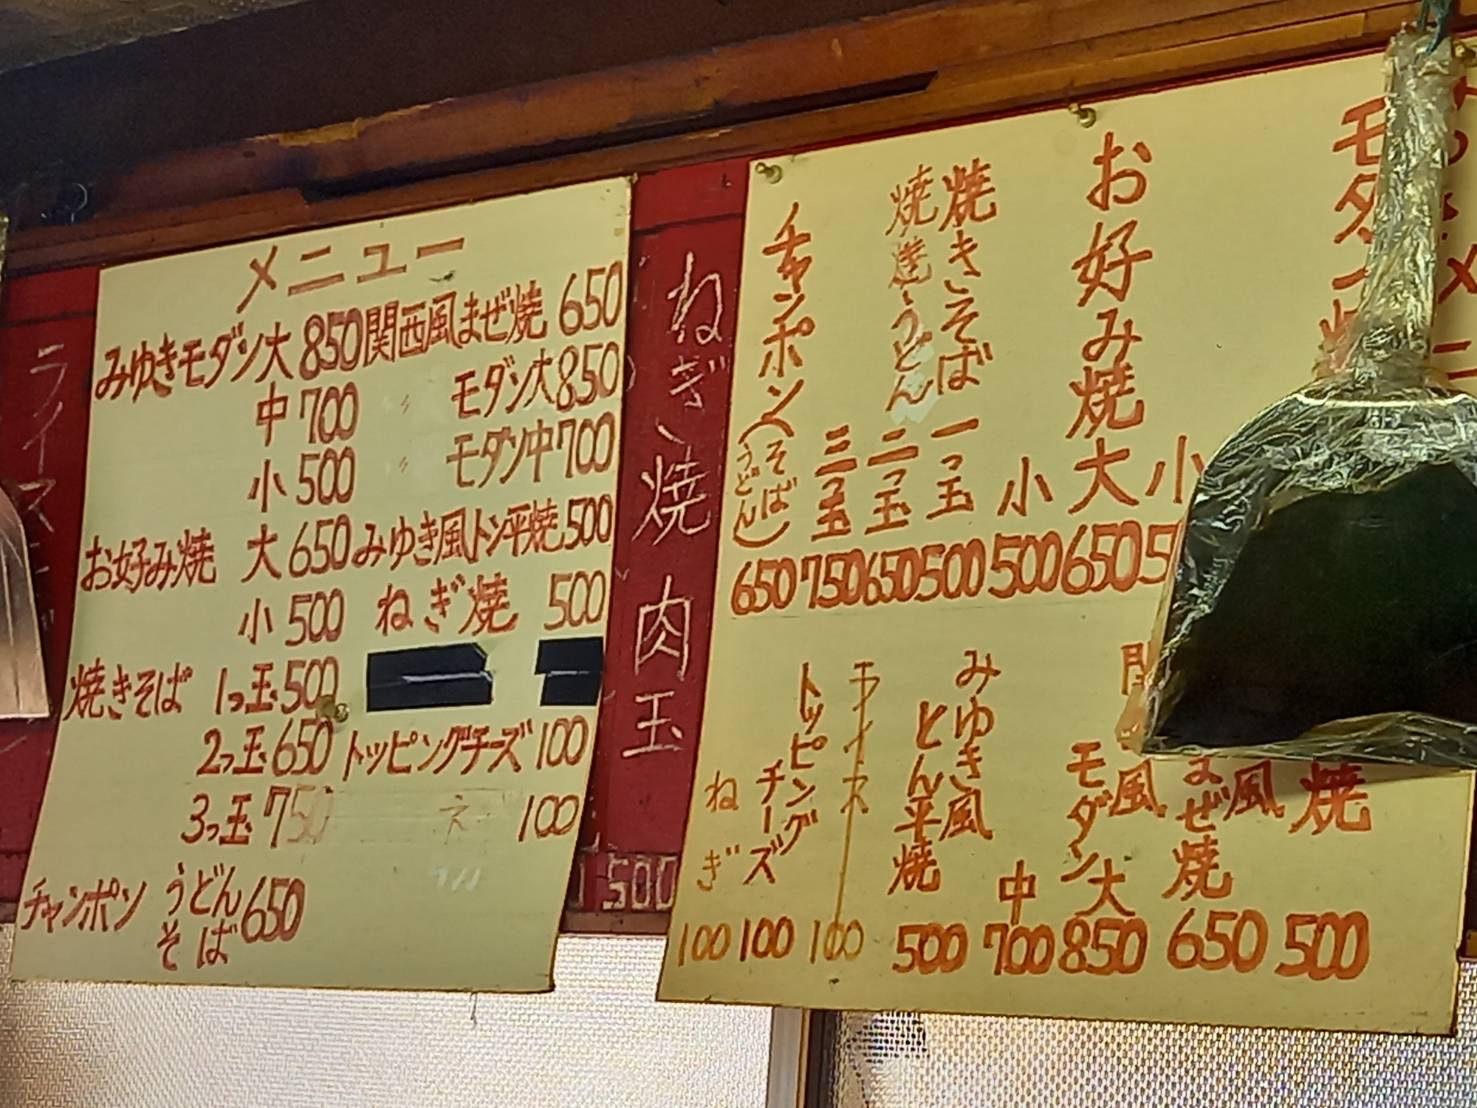 メニュー
みゆきモダン大 850
中 700
小 500
お好み焼 大 650
小 500
焼きそば 1っ玉 500
2っ玉 650
3っ玉 750
チャンポン うどん そば 650
関西風まぜ焼 650
〃 モダン大 850
〃 モダン中 700
みゆき風トン平焼 500
ねぎ焼 500
トッピングチーズ 100
100
ライス
ねぎ焼肉玉
500
モダン
小
お好み焼 大 650
小 500
焼きそば 一っ玉 500
焼うどん 二っ玉 650
三っ玉 750
チャンポン(そば うどん) 650
焼 500
風まぜ焼 650
風
モダン大 850
中 700
みゆき風とん平焼 500
100
トッピングチーズ 100
ねぎ 100